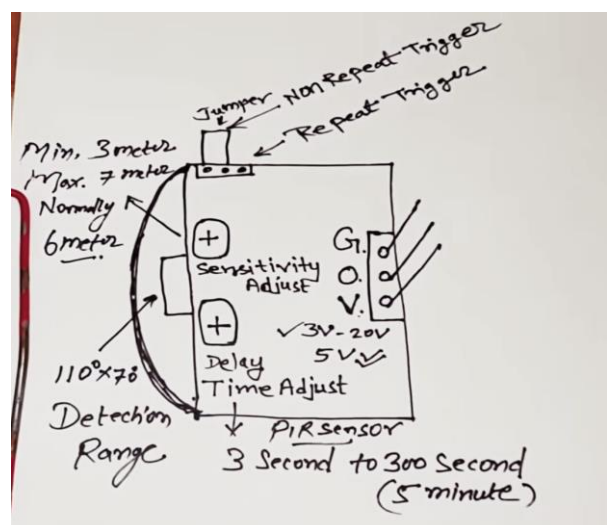 Jumper
Non Repeat Trigger
Repeat Trigger
Min. 3 meter
Max. 7 meter
Normally
6 meter
Sensitivity
Adjust
G.
O.
V.
✓3V-20V
5V✓
Delay
Time Adjust
110°x70°
Detection
Range
PIR sensor
3 Second to 300 Second
(5 minute)